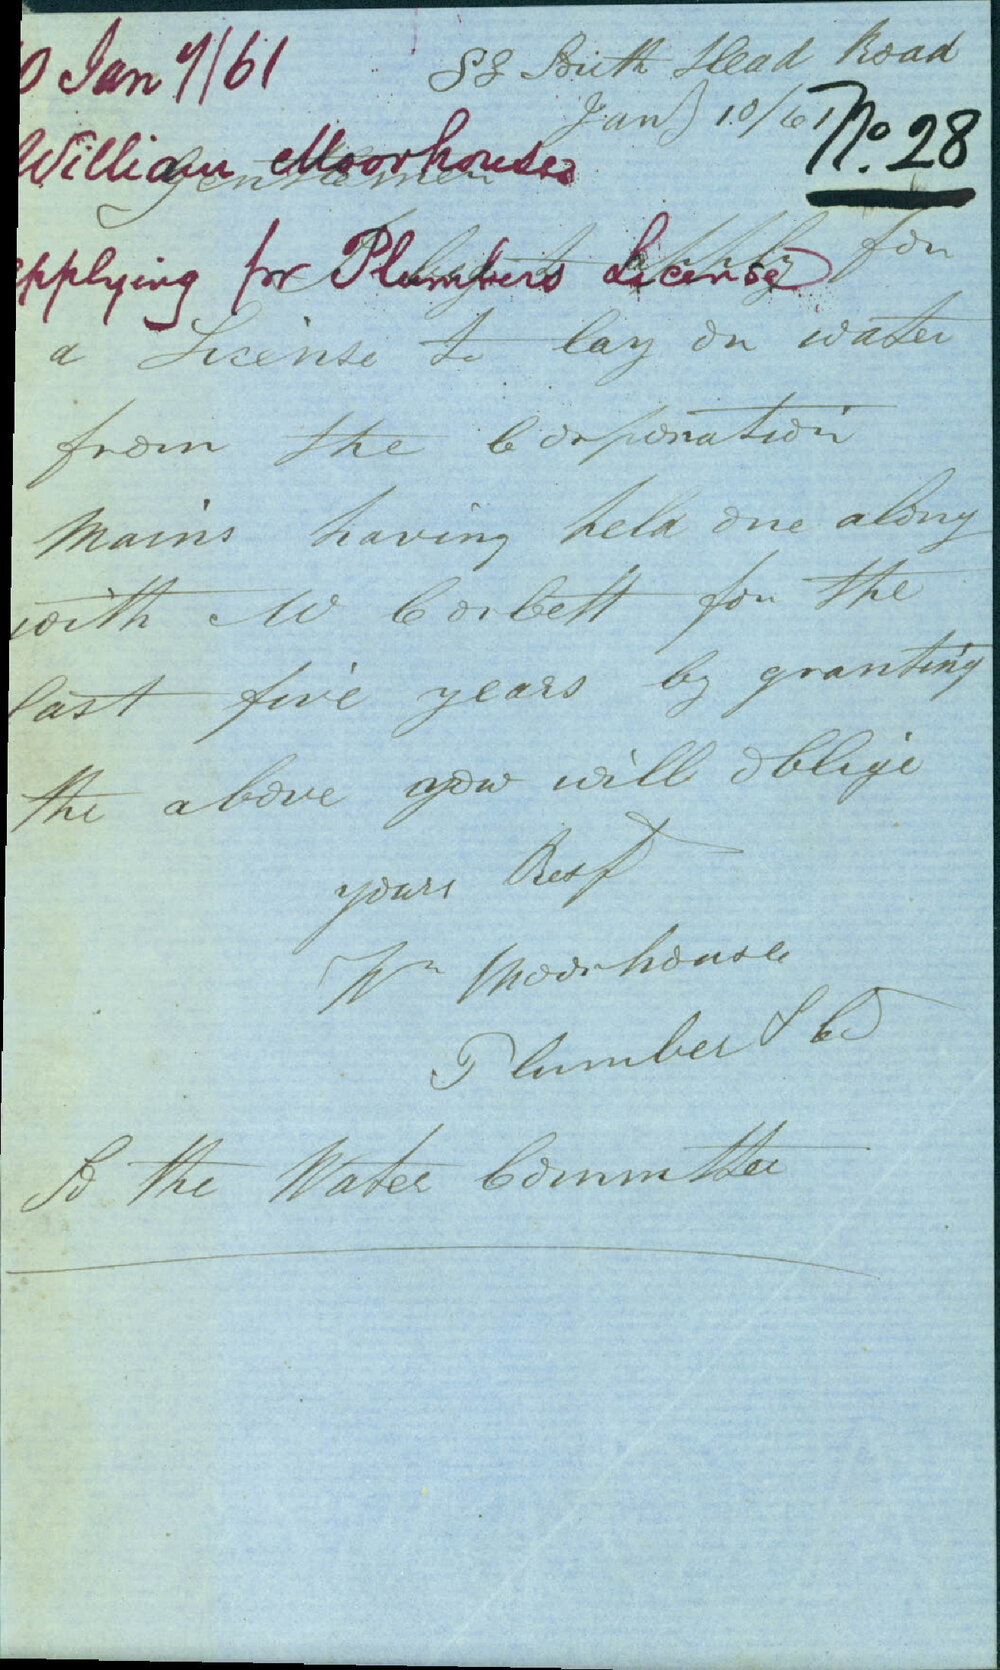 10 Jan 7/61
William Moorhouse
applying for Plumbers License
No. 28
South Head Road
Jany 10/61
Gentlemen
I beg to apply for
a License to lay on water
from the Corporation
Mains having held one along
with W Corbett for the
last five years by granting
the above you will oblige
yours Resp
Wm Moorhouse
Plumber &c
To the Water Committee